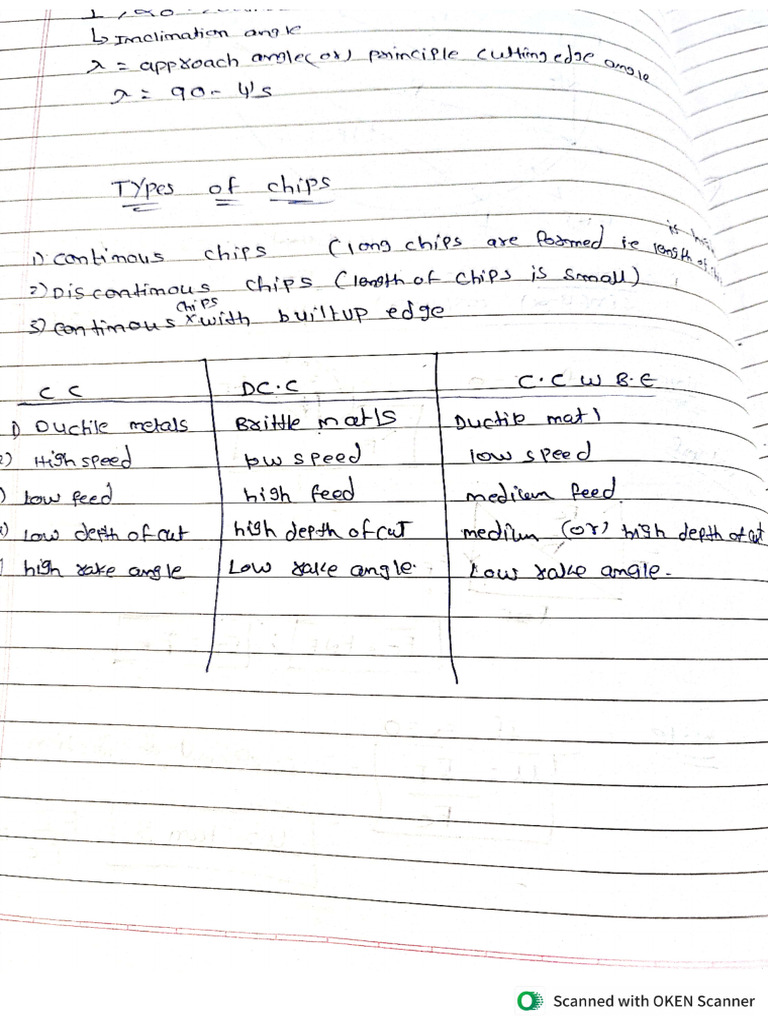 ↳ Inclimation angle
λ = approach angle (or) principle cutting edge angle
λ = 90 - ψs
Types of chips
1) continous chips (long chips are formed ie length of is
2) Discontinous chips (length of chips is small)
3) continous chips with builtup edge
CC DC.C C.C W B.E
1) Ductile metals Brittle matls Ductile matl
2) High speed low speed low speed
) low feed high feed medium feed.
) low depth of cut high depth of cut medium (or) high depth of cut
) high rake angle Low rake angle. Low rake angle.
Scanned with OKEN Scanner